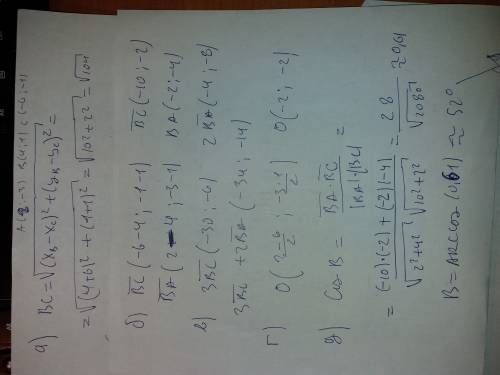 A(2;-3) B(4;1) C(-6;-1)
а) BC = √(x_B-x_C)² + (y_B-y_C)² =
= √(4+6)² + (1+1)² = √10² + 2² = √104
б) BC(-6-4; -1-1) BC(-10; -2)
BA(2-4; -3-1) BA(-2; -4)
в) 3BC(-30; -6) 2BA(-4; -8)
3BC + 2BA(-34; -14)
г) O(2-6/2; -3-1/2) O(-2; -2)
д) Cos B = BA·BC/|BA|·|BC| =
= (-10)·(-2) + (-2)(-4)/√2²+4² √10²+2² = 28/√2080 ≈ 0,61
B = Arccos(0,61) ≈ 52°